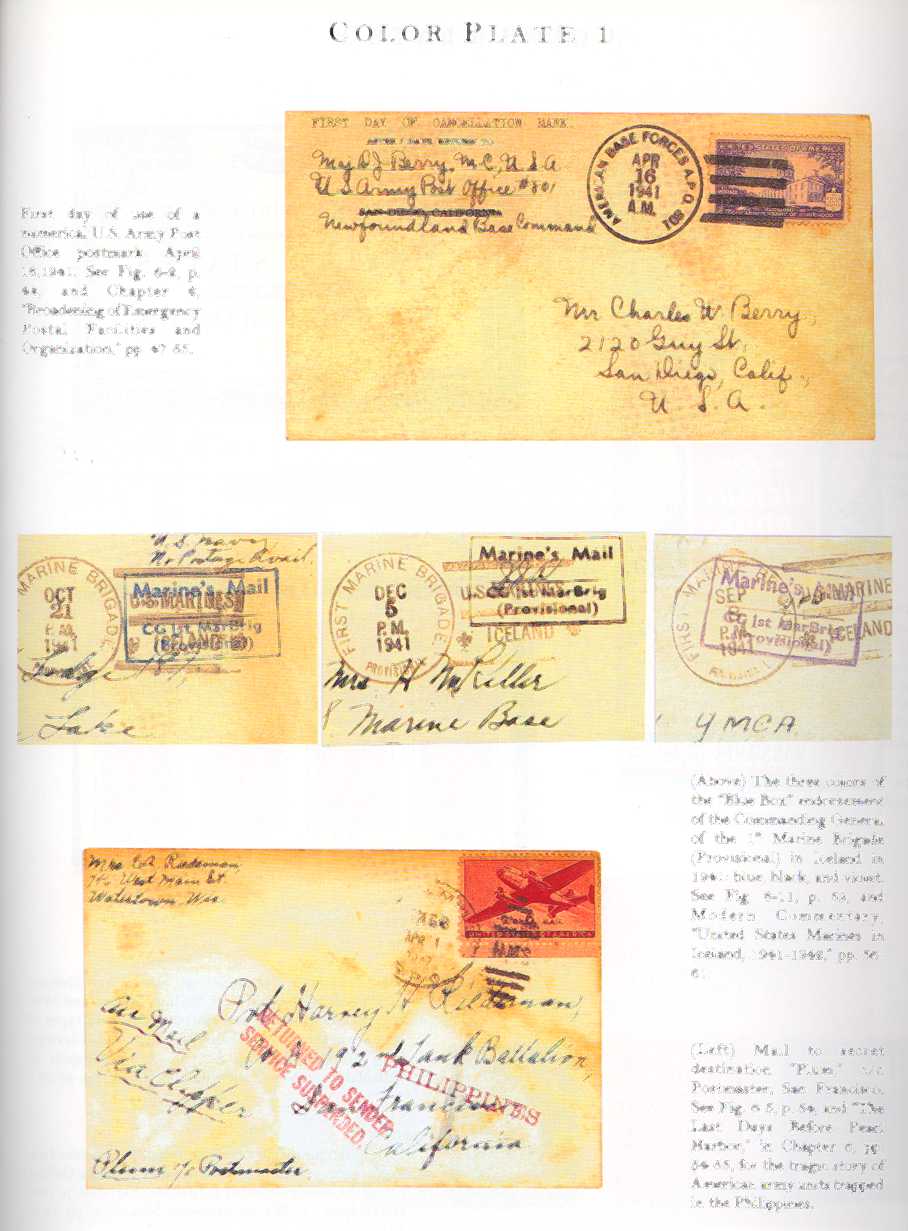 COLOR PLATE 1
FIRST DAY OF CANCELLATION
Maj D J Berry, M.C., U.S.A
U S Army Post Office #801
SAN DIEGO, CALIFORNIA
Newfoundland Base Command
AMERICAN BASE FORCES A.P.O.
APR
16
1941
A.M.
801
UNITED STATES OF AMERICA
Mr Charles W. Berry,
2120 Guy St,
San Diego, Calif.,
U. S. A.
First day of use of a
numerical U.S. Army Post
Office postmark, April
16, 1941. See Fig. 6-2, p.
and Chapter
"Broadening of Emergency
Postal Facilities and
Organization," pp. 47-85.
U.S. Navy
No Postage Avail.
MARINE BRIGADE
OCT
21
P.M.
1941
Marine's Mail
CG 1st MarBrig
(Provisional)
U.S. MARINES
ICELAND
Lake
FIRST MARINE BRIGADE
DEC
5
P.M.
1941
PROVISIONAL
Marine's Mail
CG 1st MarBrig
(Provisional)
U.S. MARINES
ICELAND
Mrs. H
Marine Base
MARINE
SEP
8
P.M.
1941
Marine's Mail
CG 1st MarBrig
(Provisional)
MARINE
ICELAND
YMCA
(Above) The three colors of
the "Blue Box" endorsement
of the Commanding General
of the 1st Marine Brigade
(Provisional) in Iceland in
1941: blue, black, and violet.
See Fig. 6-11, p. and
Modern Commentary,
"United States Marines in
Iceland, 1941-1942," pp.
Watertown, Wis.
West Main St.
APR 1
UNITED STATES OF AMERICA
Pvt. Harvey A Riedeman,
192nd Tank Battalion,
San Francisco
California
Air Mail
Via Clipper
RETURNED TO SENDER
SERVICE SUSPENDED.
PHILIPPINES
Plum c/o Postmaster
(Left) Mail to secret
destination "PLUM" c/o
Postmaster, San Francisco.
See Fig. 6-5, p. and "The
Last Days Before Pearl
Harbor," in Chapter 6, pp.
84-85, for the tragic story of
American army units trapped
in the Philippines.